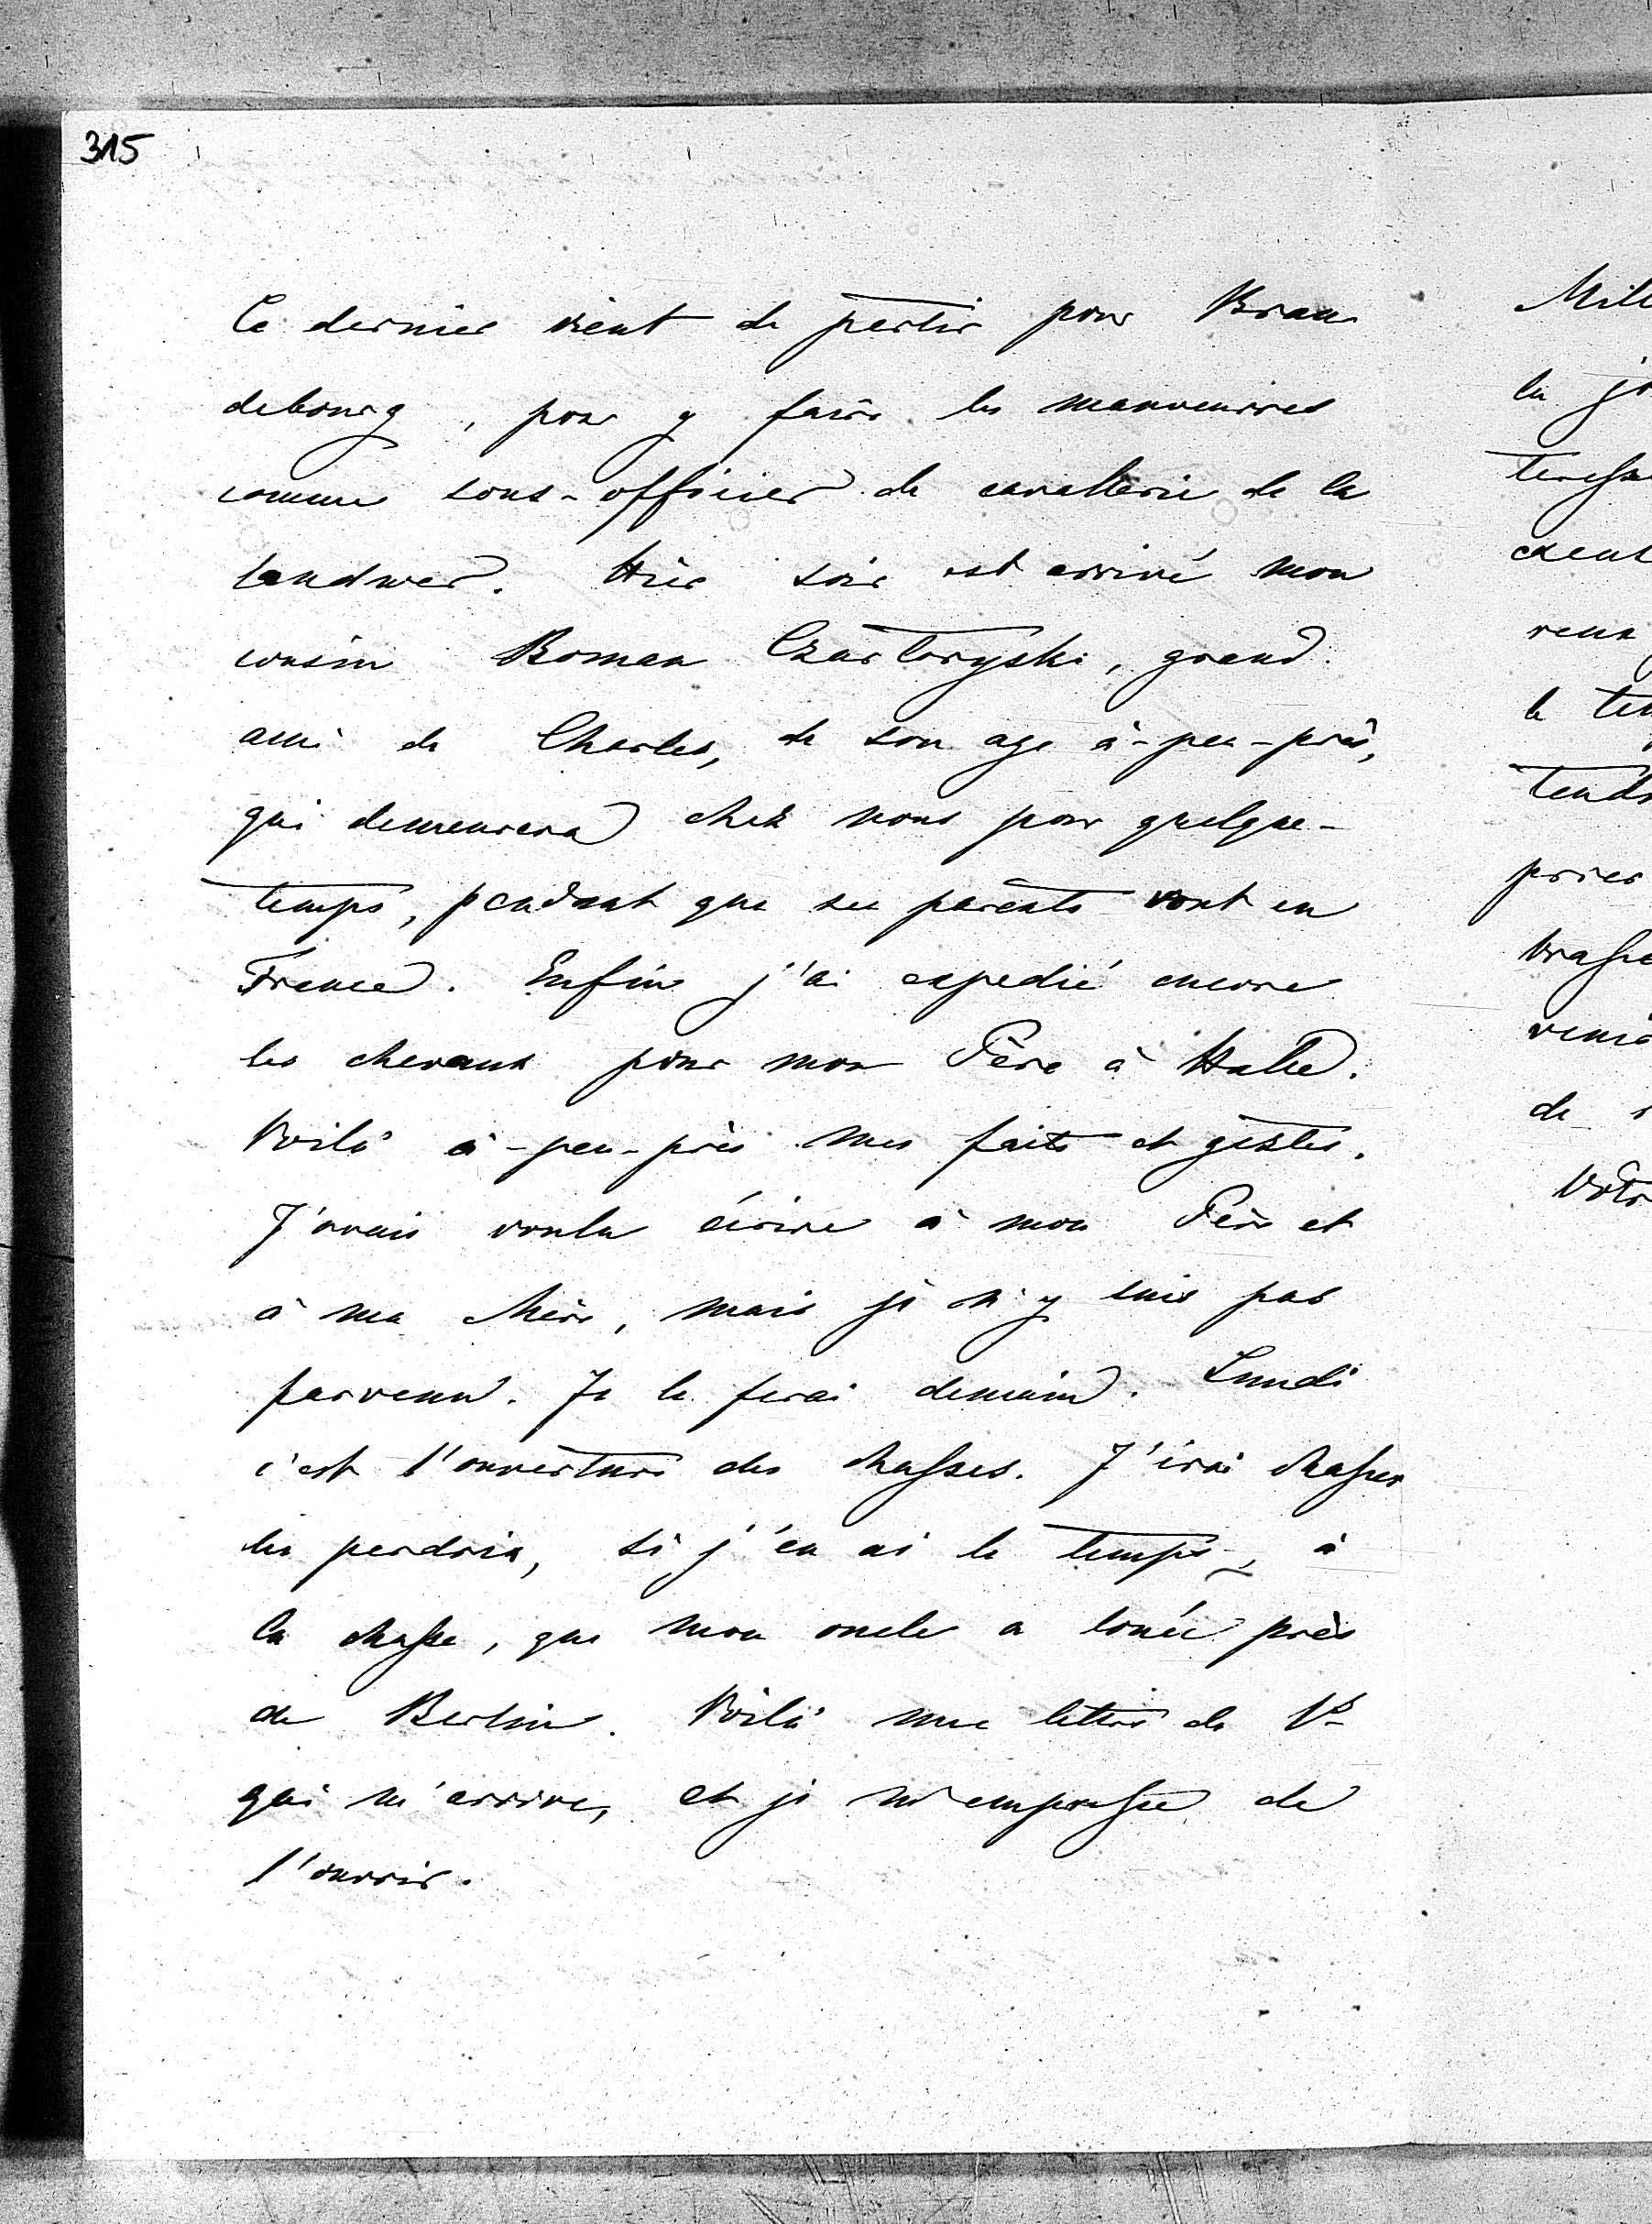 315
Ce dernier vient de partir pour Bran
debourg, pour y faire les manveuvres
comme sous-officier de cavallerie de la
landwer. Hier soir est arrivé mon
cousin Roman Czartoryski, grand
ami de Charles, de son age à-peu-près,
qui demeurera chez nous pour quelque-
temps, pendant que ses parents vont en
France. Enfin j'ai expedié encore
les chevaux pour mon Père à Halle.
Voilà à-peu-près mes faits et gestes.
J'avais voulu écrire à mon Père et
à ma Mère, mais je n'y suis pas
parvenu. Je le ferai demain. Lundi
c'est l'ouverture des chasses. J'irai chasser
les perdrix, si j'en ai le temps, à
la chasse, que mon oncle a louée près
de Berlin. Voilà une lettre de V.
qui m'arrive, et je m'empresse de
l'ouvrir.